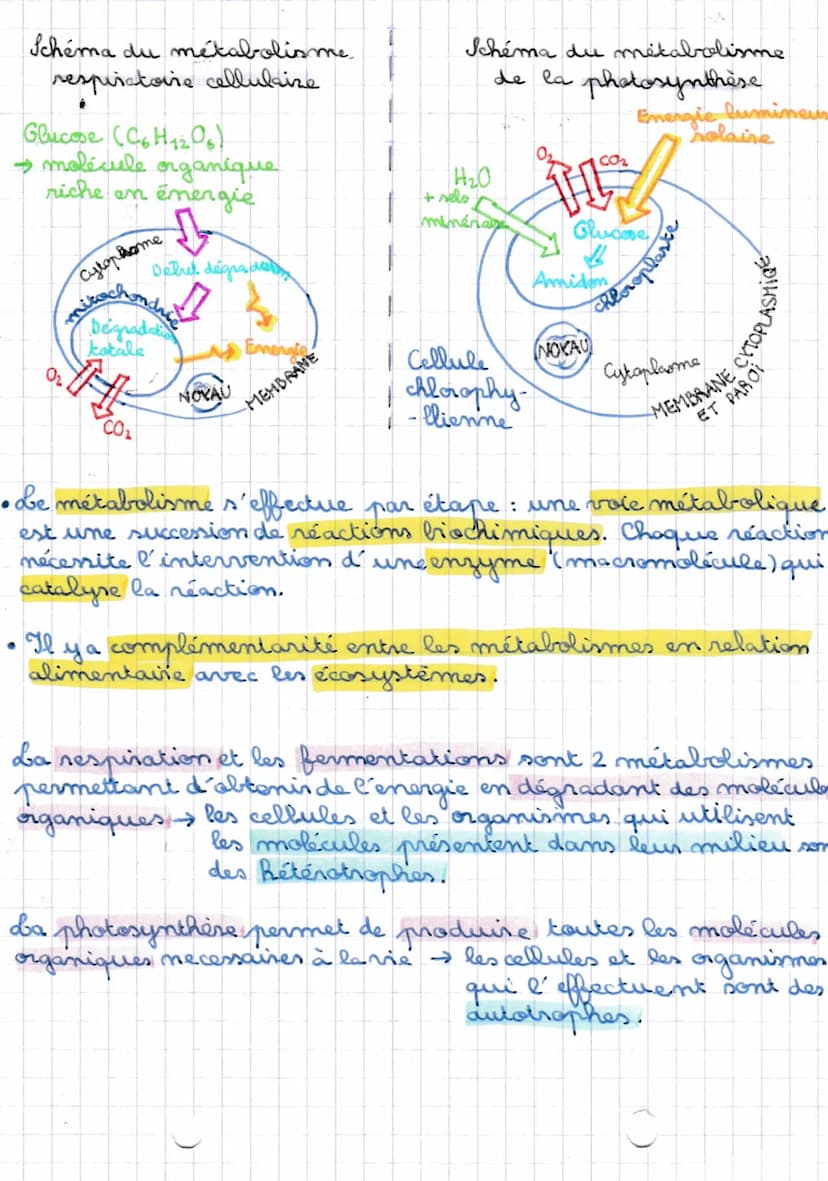 Schéma du métabolisme
respiratoire cellulaire
Glucose (C₆H₁₂O₆)
→ molécule organique
riche en énergie
Cytoplasme
Début dégradation
mitochondrie
Dégradation
totale
Energie
O₂
CO₂
NOYAU
MEMBRANE
Schéma du métabolisme
de la photosynthèse
Energie lumineus
solaire
O₂
CO₂
H₂O
+ sels
minéraux
Glucose
Amidon
chloroplaste
NOYAU
Cytoplasme
MEMBRANE CYTOPLASMIQUE
ET PAROI
Cellule
chlorophy-
-llienne
• Le métabolisme s'effectue par étape : une voie métabolique
est une succession de réactions biochimiques. Chaque réaction
nécessite l'intervention d'une enzyme (macromolécule) qui
catalyse la réaction.
• Il y a complémentarité entre les métabolismes en relation
alimentaire avec les écosystèmes.
La respiration et les fermentations sont 2 métabolismes
permettant d'obtenir de l'energie en dégradant des molécule
organiques → les cellules et les organismes qui utilisent
les molécules présentent dans leur milieu son
des hétérotrophes.
La photosynthèse permet de produire toutes les molécules
organiques necessaires à la vie → les cellules et les organismes
qui l'effectuent sont des
autotrophes.